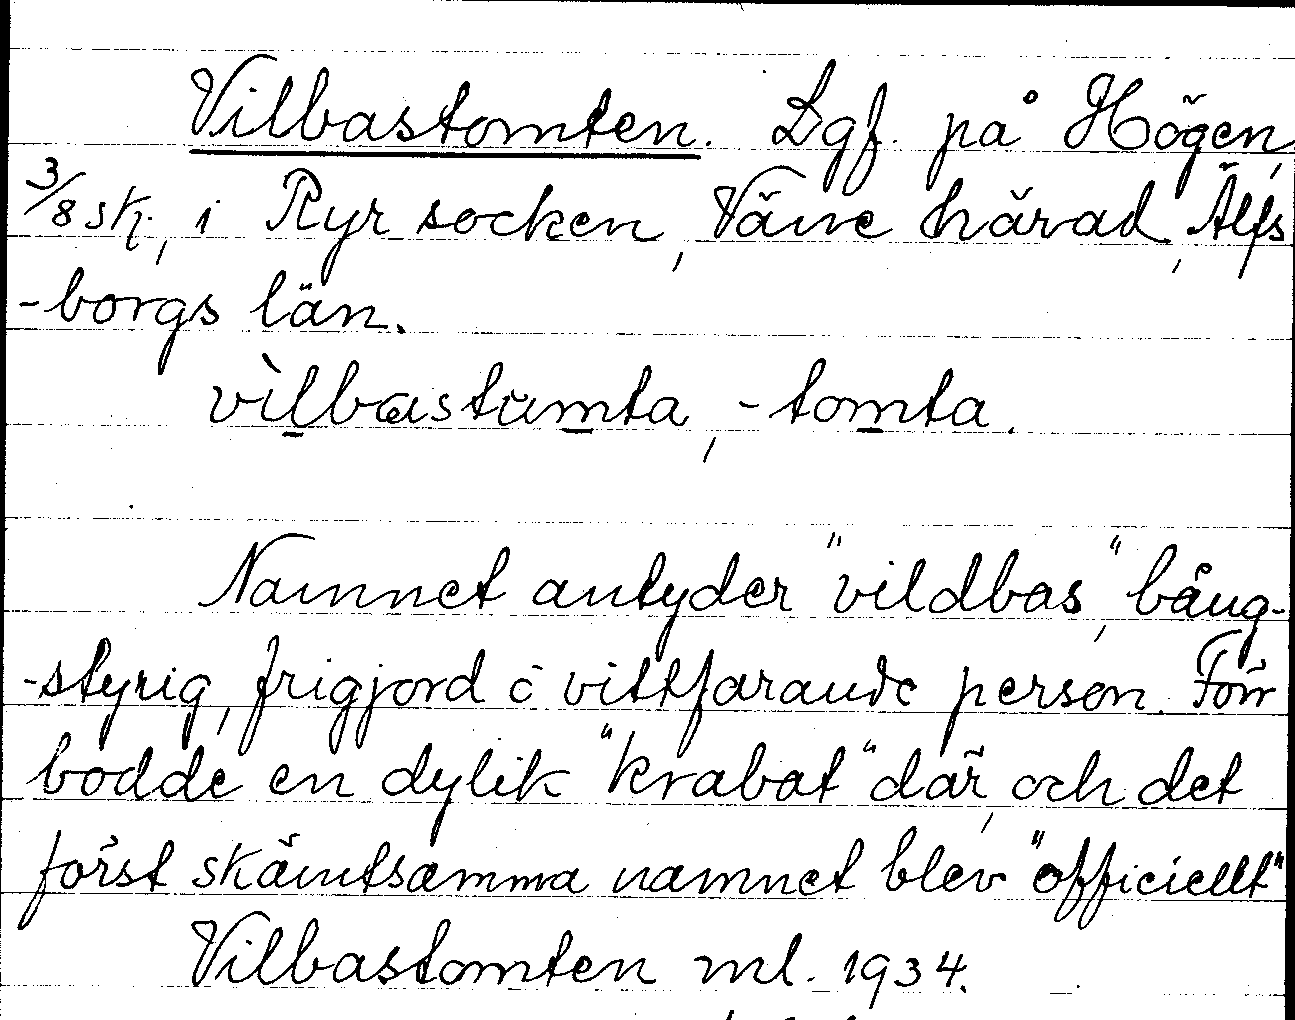 Vilbastomten. Lgf. på Högen,
3/8 sk., i Ryr socken, Väne härad, Älfs
-borgs län.
vìlbastumta, -tomta.
Namnet antyder "vildbas", bång-
-styrig, frigjord o vittfarande person. Förr
bodde en dylik "krabat" där, och det
först skämtsamma namnet blev "officiellt"
Vilbastomten ml. 1934.